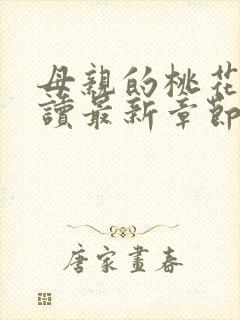 母親的桃花
讀最新章節
唐家畫春